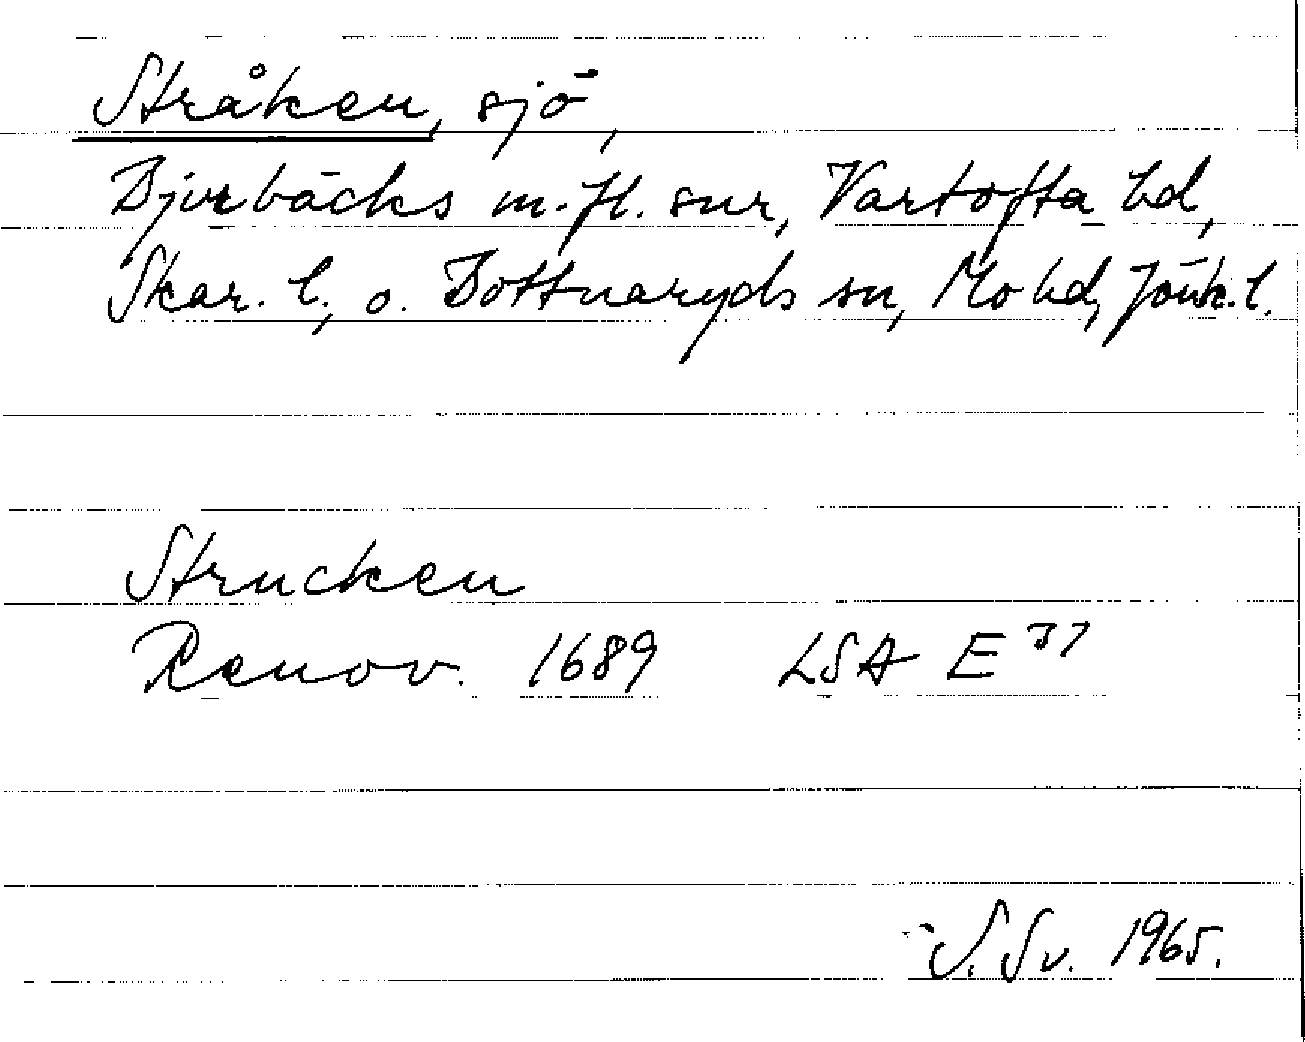 Stråken, sjö,
Bjurbäcks m.fl. snr, Vartofta hd,
Skar. l., o. Bottnaryds sn, Mo hd, Jönk. l.
Strucken
Renov. 1689 LSA E 37
S. Sv. 1965.